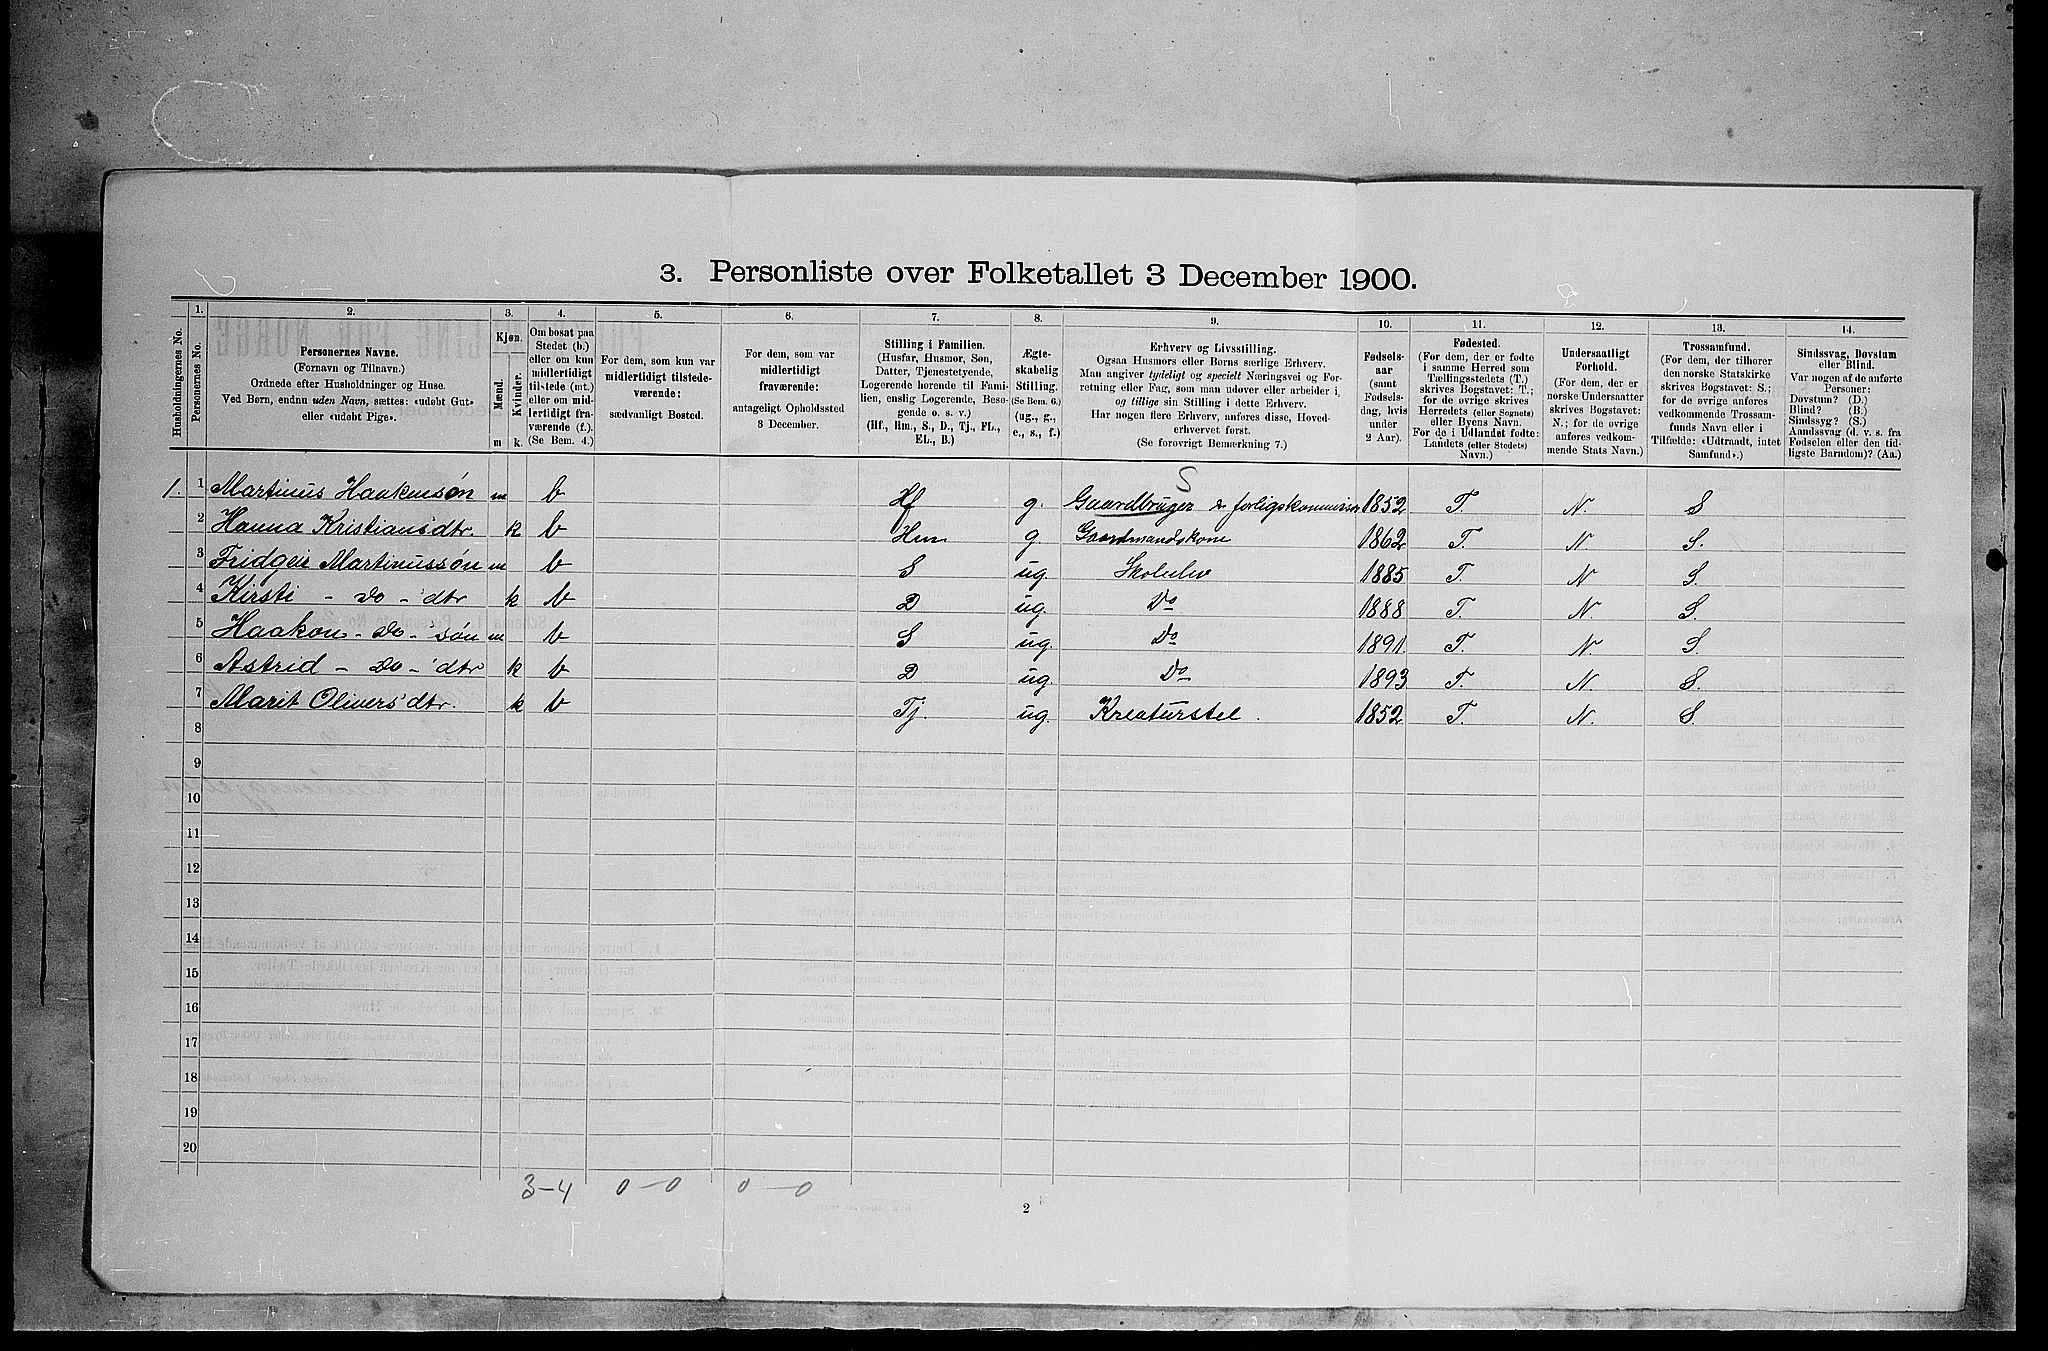 3. Personliste over Folketallet 3 December 1900.
Husholdningernes No.
1.
Personernes No.
2.
Personernes Navne.
(Fornavn og Tilnavn.)
Ordnede efter Husholdninger og Huse.
Ved Børn, endnu uden Navn, sættes: «udøbt Gut»
eller «udøbt Pige».
3.
Kjøn.
Mænd.
Kvinder.
m k.
4.
Om bosat paa
Stedet (b.)
eller om kun
midlertidigt
tilstede (mt.)
eller om mid-
lertidigt fra-
værende (f.).
(Se Bem. 4.)
5.
For dem, som kun var
midlertidigt tilstede-
værende:
sædvanligt Bosted.
6.
For dem, som var
midlertidigt
fraværende:
antageligt Opholdssted
3 December.
7.
Stilling i Familien.
(Husfar, Husmor, Søn,
Datter, Tjenestetyende,
Logerende hørende til Fami-
lien, enslig Logerende, Besø-
gende o. s. v.)
(Hf., Hm., S., D., Tj., FL.,
EL., B.)
8.
Ægte-
skabelig
Stilling.
(Se Bem. 6.)
(ug., g.,
e., s., f.)
9.
Erhverv og Livsstilling.
Ogsaa Husmors eller Børns særlige Erhverv.
Man angiver tydeligt og specielt Næringsvei og For-
retning eller Fag, som man udøver eller arbeider i,
og tillige sin Stilling i dette Erhverv.
Har nogen flere Erhverv, anføres disse, Hoved-
erhvervet først.
(Se forøvrigt Bemærkning 7.)
10.
Fødsels-
aar
(samt
Fødsels-
dag, hvis
under
2 Aar).
11.
Fødested.
(For dem, der er fødte
i samme Herred som
Tællingsstedets (T.)
skrives Bogstavet: T.;
for de øvrige skrives
Herredets (eller Sognets)
eller Byens Navn.
For de i Udlandet fødte:
Landets (eller Stedets)
Navn.)
12.
Undersaatligt
Forhold.
(For dem, der er
norske Undersaatter
skrives Bogstavet:
N.; for de øvrige
anføres vedkom-
mende Stats Navn.)
13.
Trossamfund.
(For dem, der tilhører
den norske Statskirke
skrives Bogstavet: S.;
for de øvrige anføres
vedkommende Trossam-
funds Navn eller i
Tilfælde: «Udtraadt, intet
Samfund».)
14.
Sindssvag, Døvstum
eller Blind.
Var nogen af de anførte
Personer:
Døvstum? (D.)
Blind? (B.)
Sindssyg? (S.)
Aandssvag (d. v. s. fra
Fødselen eller den tid-
ligste Barndom)? (Aa.)
S
1. 1 Martinus Haakensøn m b Hf g. Gaardbruger & forligskommissr 1852 T. N. S
2 Hanna Kristiansdtr. k b Hm g. Gaardmandskone 1862 T. N. S.
3 Fridgeir Martinussøn m b S ug. Skoleelev 1885 T. N S.
4 Kirsti - Do - dtr k b D ug. Do 1888 T. N. S.
5 Haakon - Do - søn m b S ug. Do 1891. T. N S.
6 Astrid - Do - dtr k b D ug. Do 1893 T. N. S.
7 Marit Olivers'dtr. k b Tj. ug. Kreaturstel. 1852 T. N. S.
8
9
10
11
12
13
14
15
16
17
18
19
20
3-4 0-0 0-0
2